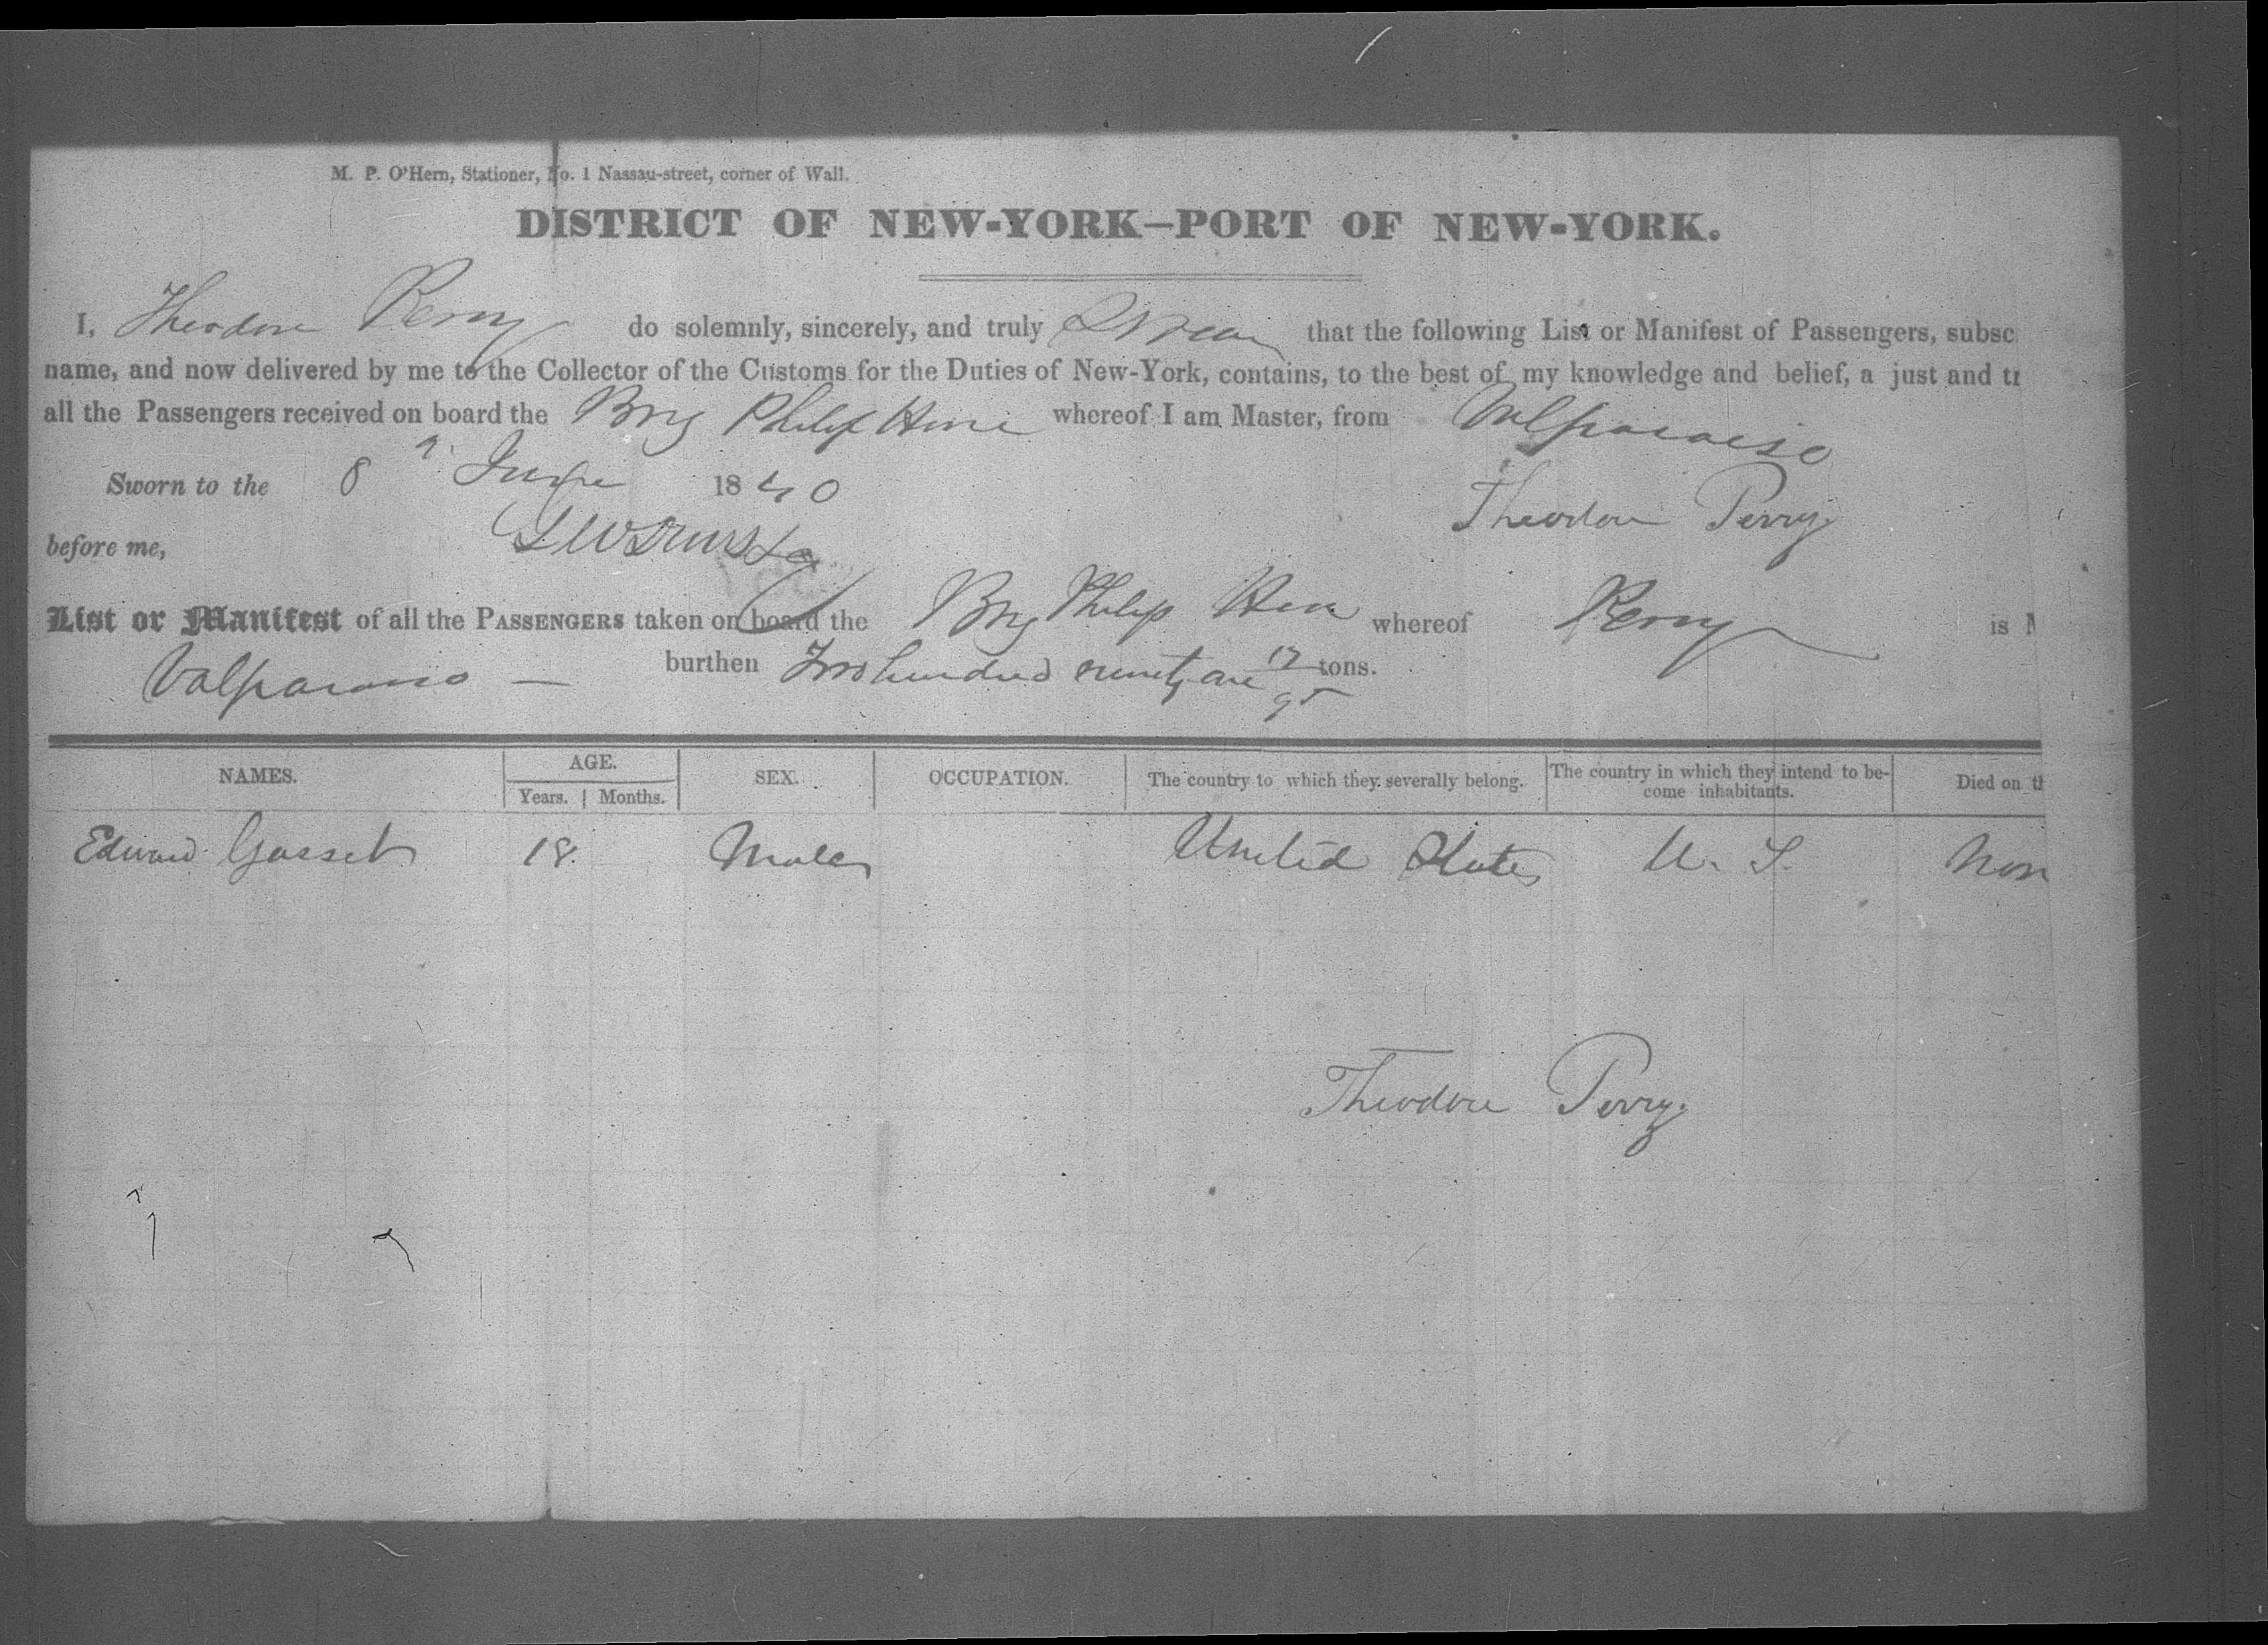 M. P. O'Hern, Stationer, No. 1 Nassau-street, corner of Wall.
DISTRICT OF NEW-YORK—PORT OF NEW-YORK.
I, Theodore Perry do solemnly, sincerely, and truly Swear that the following List or Manifest of Passengers, subsc
name, and now delivered by me to the Collector of the Customs for the Duties of New-York, contains, to the best of my knowledge and belief, a just and tr
all the Passengers received on board the Brig Philip Hone whereof I am Master, from Valparaiso
Sworn to the 8 June 1840 Theodore Perry
before me,
List or Manifest of all the PASSENGERS taken on board the Brig Philip Hone whereof Perry is M
Valparaiso — burthen Two hundred ninety one 12/95 tons.
NAMES. AGE. SEX. OCCUPATION. The country to which they severally belong. The country in which they intend to be-
Years. Months. come inhabitants. Died on th
Edward Gasset 18. Male United States U. S. Non
Theodore Perry